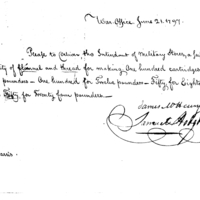 War Office June 21. 1797.
Please to Deliver, the Intendant of Military Stores, a
ity of Flannel and thread for making One hundred cartridges
pounders — One hundred for Twelve pounders — Fifty for Eighteen
Fifty for Twenty four pounders —
James McHenry
Samuel Hodgdon